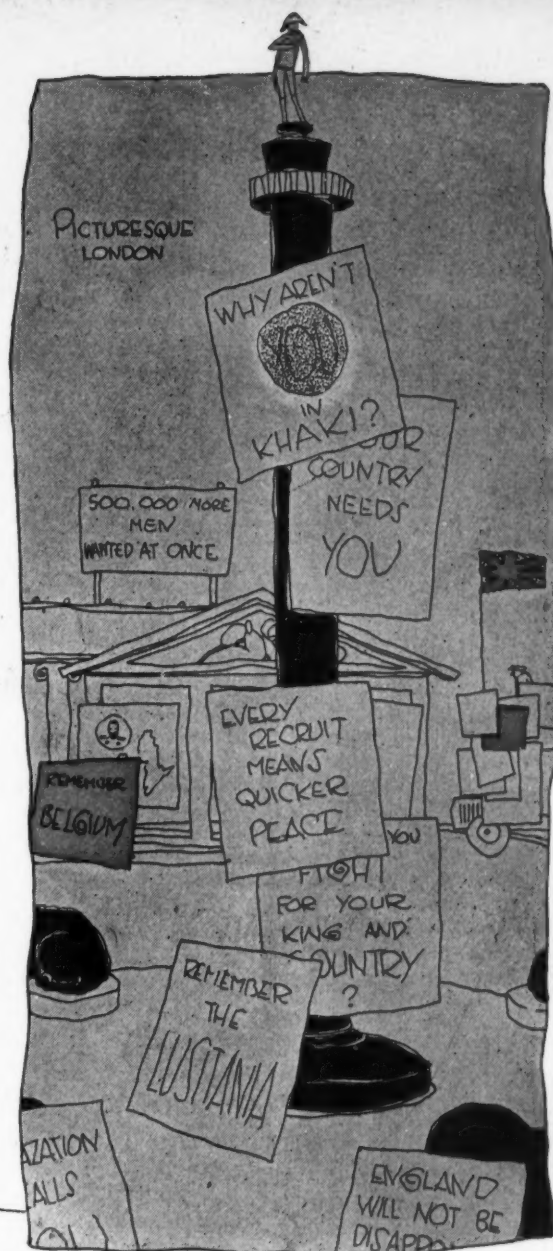 PICTURESQUE
LONDON
WHY AREN'T
YOU
IN
KHAKI?
OUR
COUNTRY
NEEDS
YOU
500,000 MORE
MEN
WANTED AT ONCE
EVERY
RECRUIT
MEANS
QUICKER
PEACE
REMEMBER
BELGIUM
YOU
FIGHT
FOR YOUR
KING AND
COUNTRY
?
REMEMBER
THE
LUSITANIA
AZATION
ALLS
ENGLAND
WILL NOT BE
DISAPPO